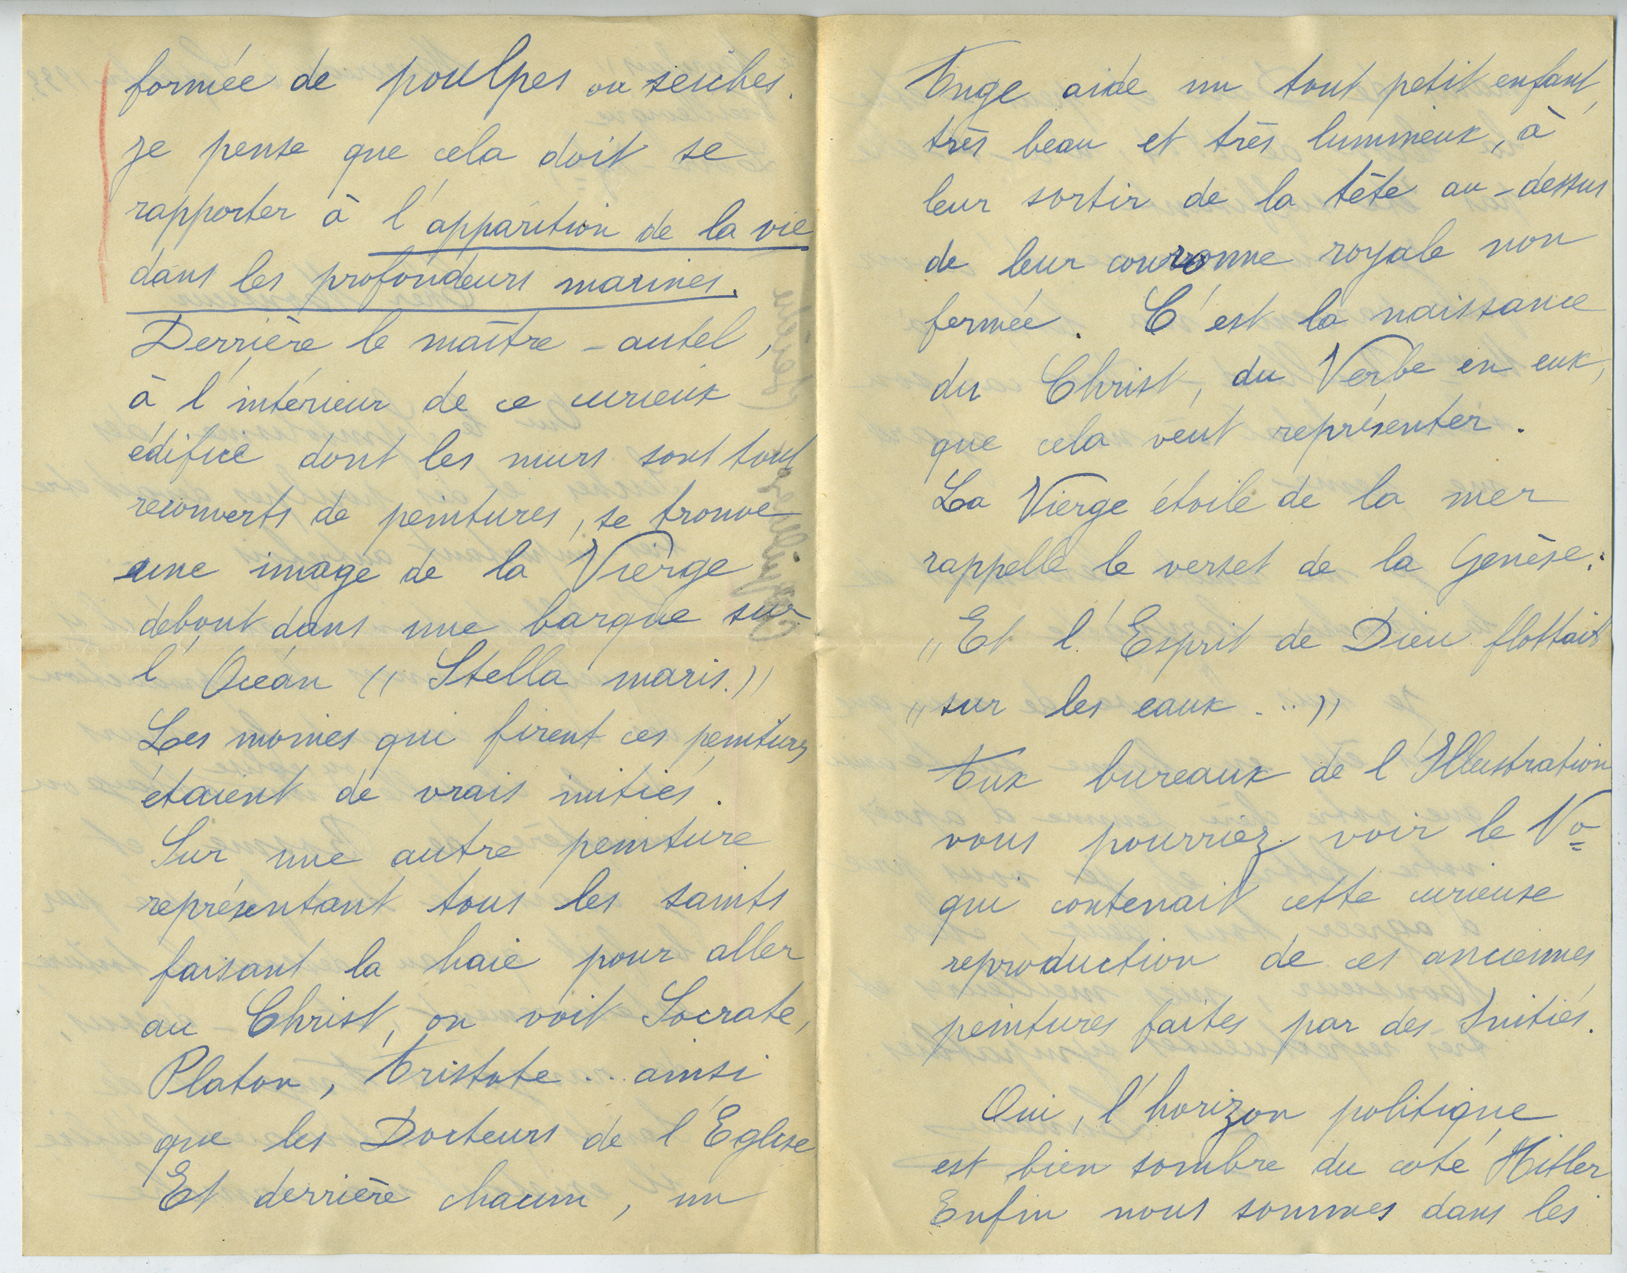 formée de poulpes ou seiches.
je pense que cela doit se
rapporter à l'apparition de la vie
dans les profondeurs marines.
Derrière le maître-autel,
à l'intérieur de ce curieux
édifice dont les murs sont tout
recouverts de peintures, se trouve
une image de la Vierge
debout dans une barque sur
l'Océan (( Stella maris. ))
Les moines qui firent ces peintures
étaient de vrais initiés.
Sur une autre peinture
représentant tous les saints
faisant la haie pour aller
au Christ, on voit Socrate,
Platon, Aristote... ainsi
que les Docteurs de l'Église
Et derrière chacun, un
Ange aide un tout petit enfant,
très beau et très lumineux, à
leur sortir de la tête au-dessus
de leur couronne royale non
fermée. C'est la naissance
du Christ, du Verbe en eux,
que cela veut représenter.
La Vierge étoile de la mer
rappelle le verset de la Genèse:
"Et l'Esprit de Dieu flottait
"sur les eaux...))
Aux bureaux de l'Illustration
vous pourriez voir le No
qui contenait cette curieuse
reproduction de ces anciennes
peintures faites par des Initiés.
Oui, l'horizon politique
est bien sombre du coté Hitler
Enfin nous sommes dans les